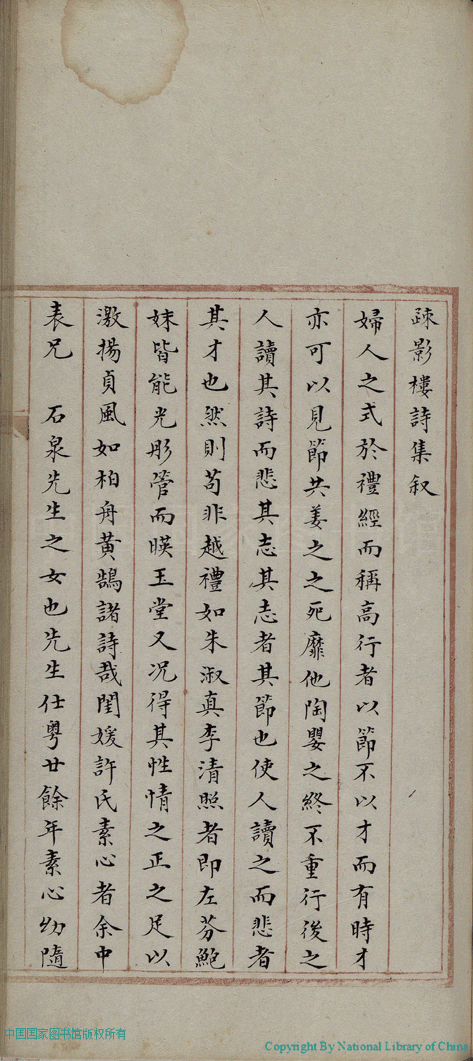 疎影樓詩集叙
婦人之式於禮經而稱高行者以節不以才而有時才
亦可以見節共姜之之死靡他陶嬰之終不重行後之
人讀其詩而悲其志其志者其節也使人讀之而悲者
其才也然則苟非越禮如朱淑真李清照者即左芬鮑
妹皆能光彤管而暎玉堂又况得其性情之正之足以
激揚貞風如柏舟黃鵠諸詩哉閨媛許氏素心者余中
表兄　石泉先生之女也先生仕粤廿餘年素心幼隨
中国国家图书馆版权所有
Copyright By National Library of China